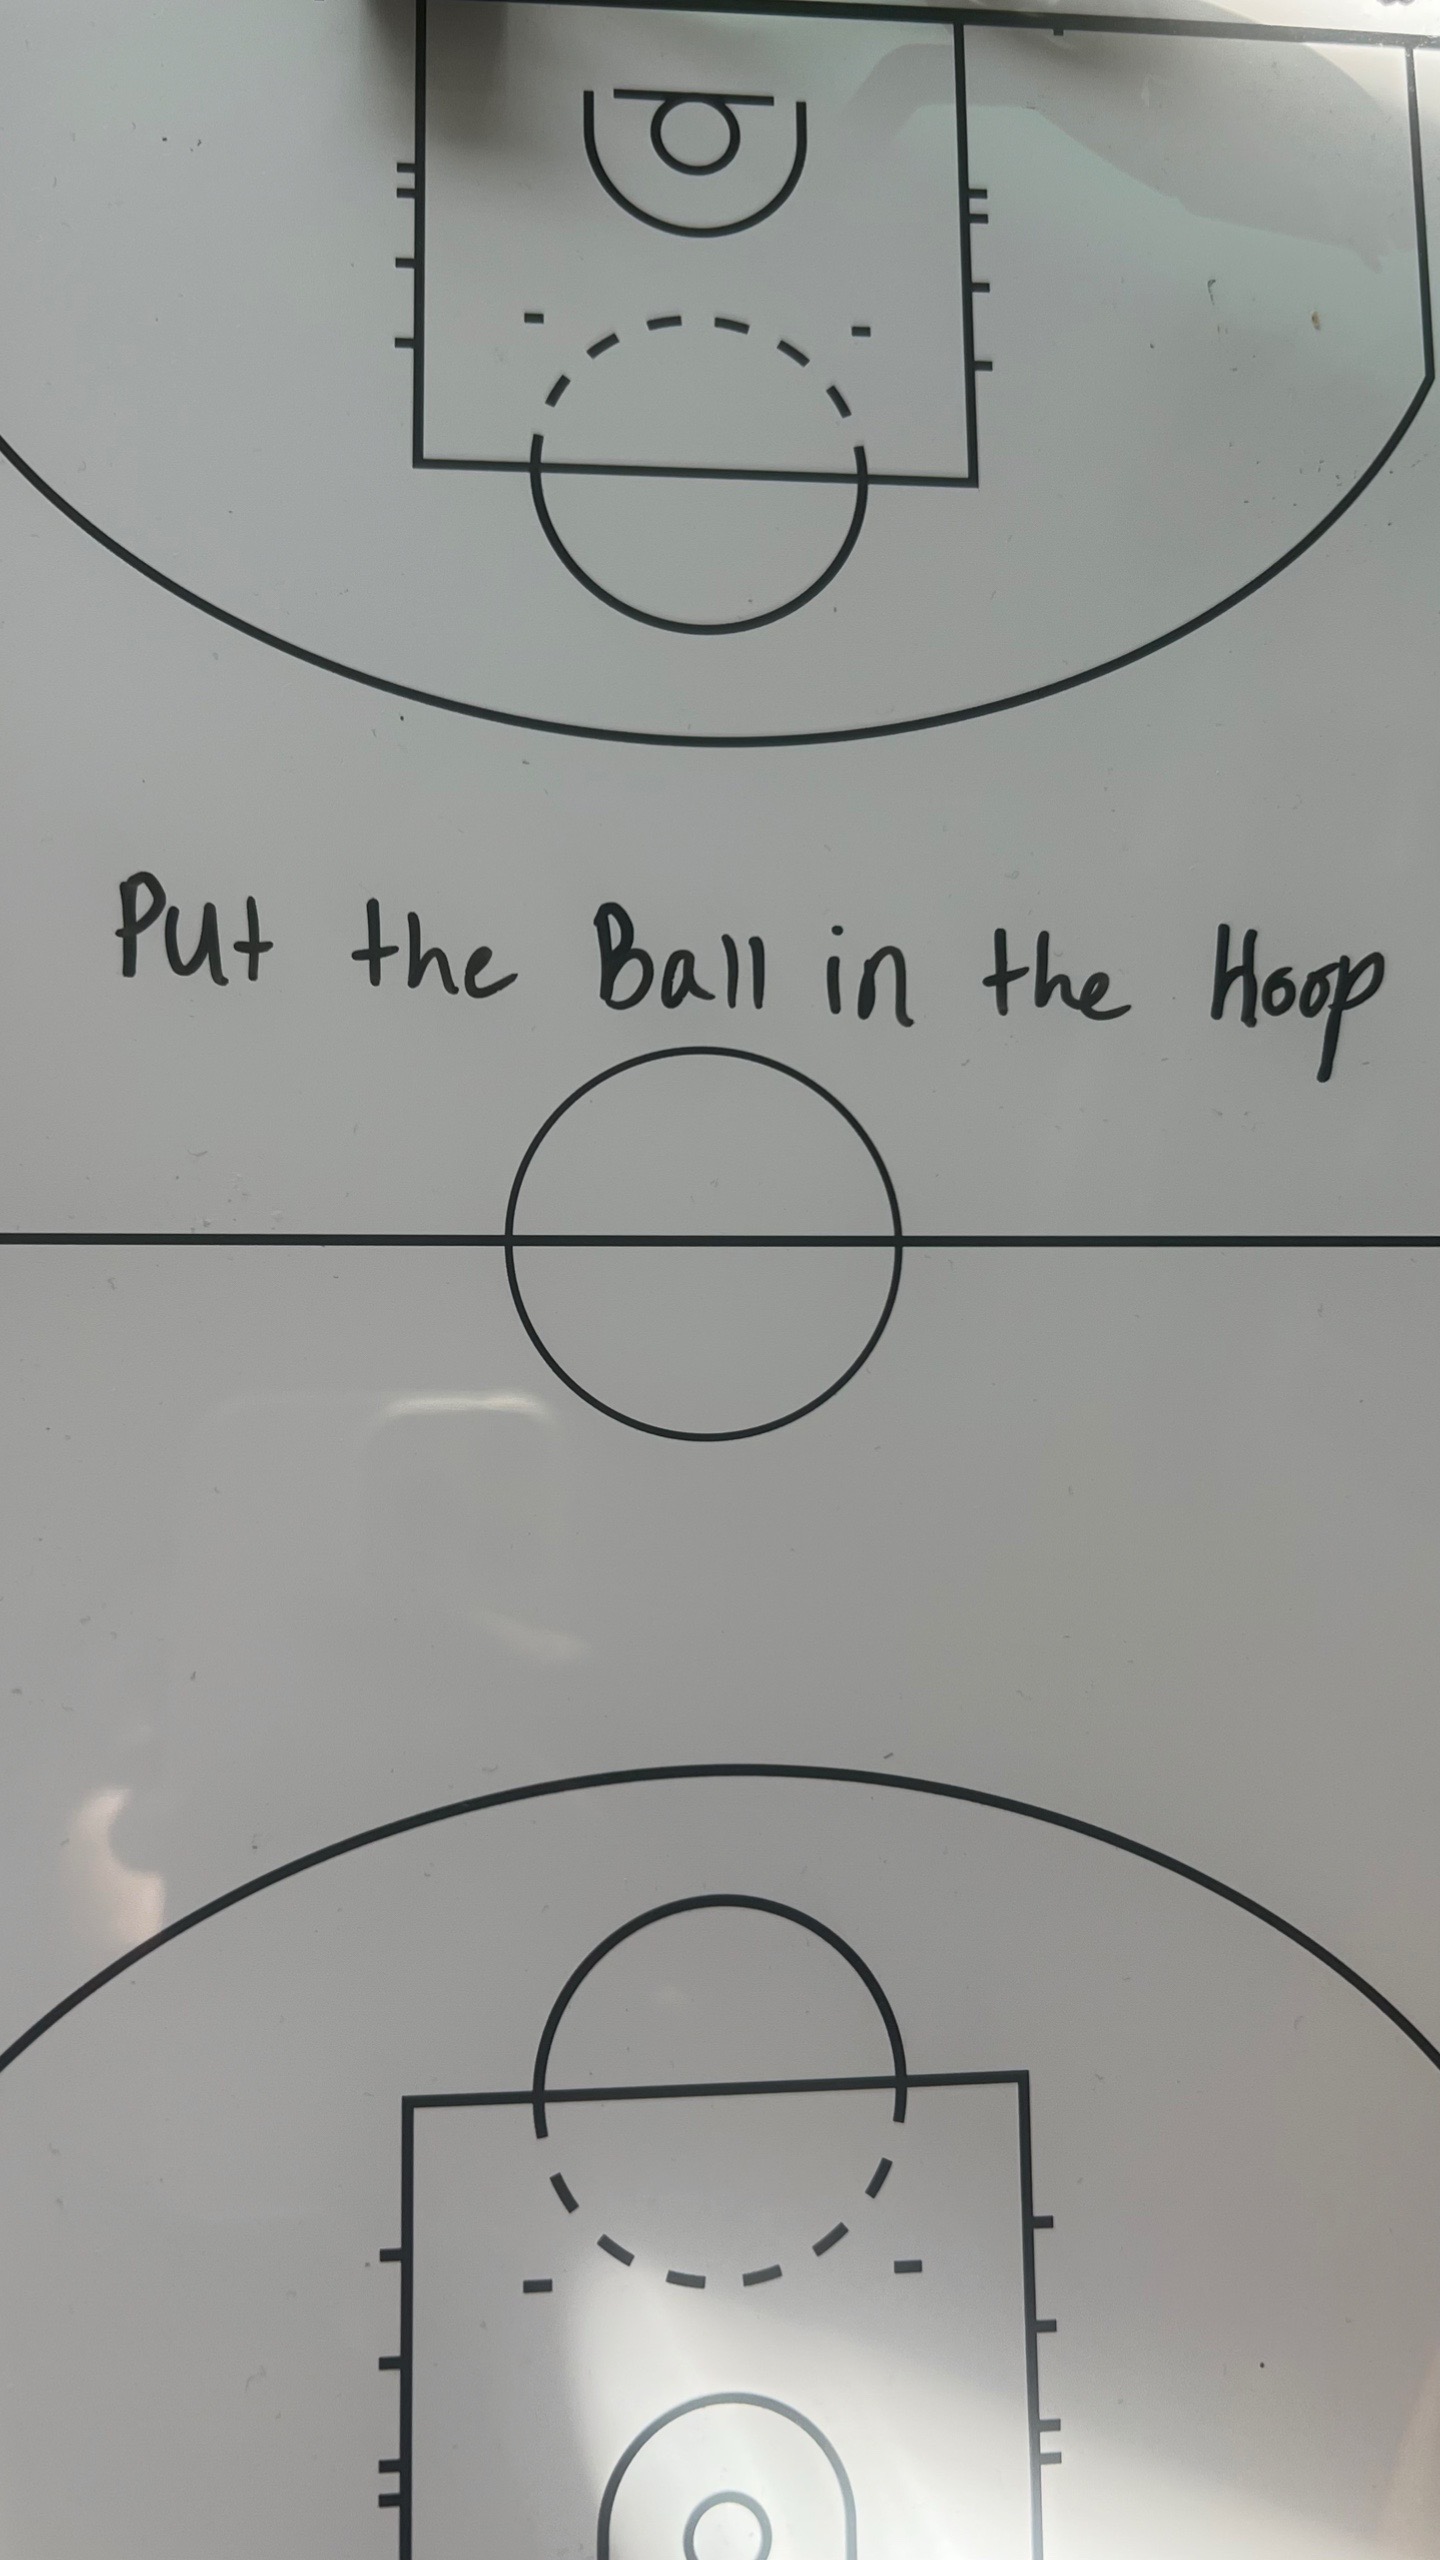 Put the Ball in the Hoop